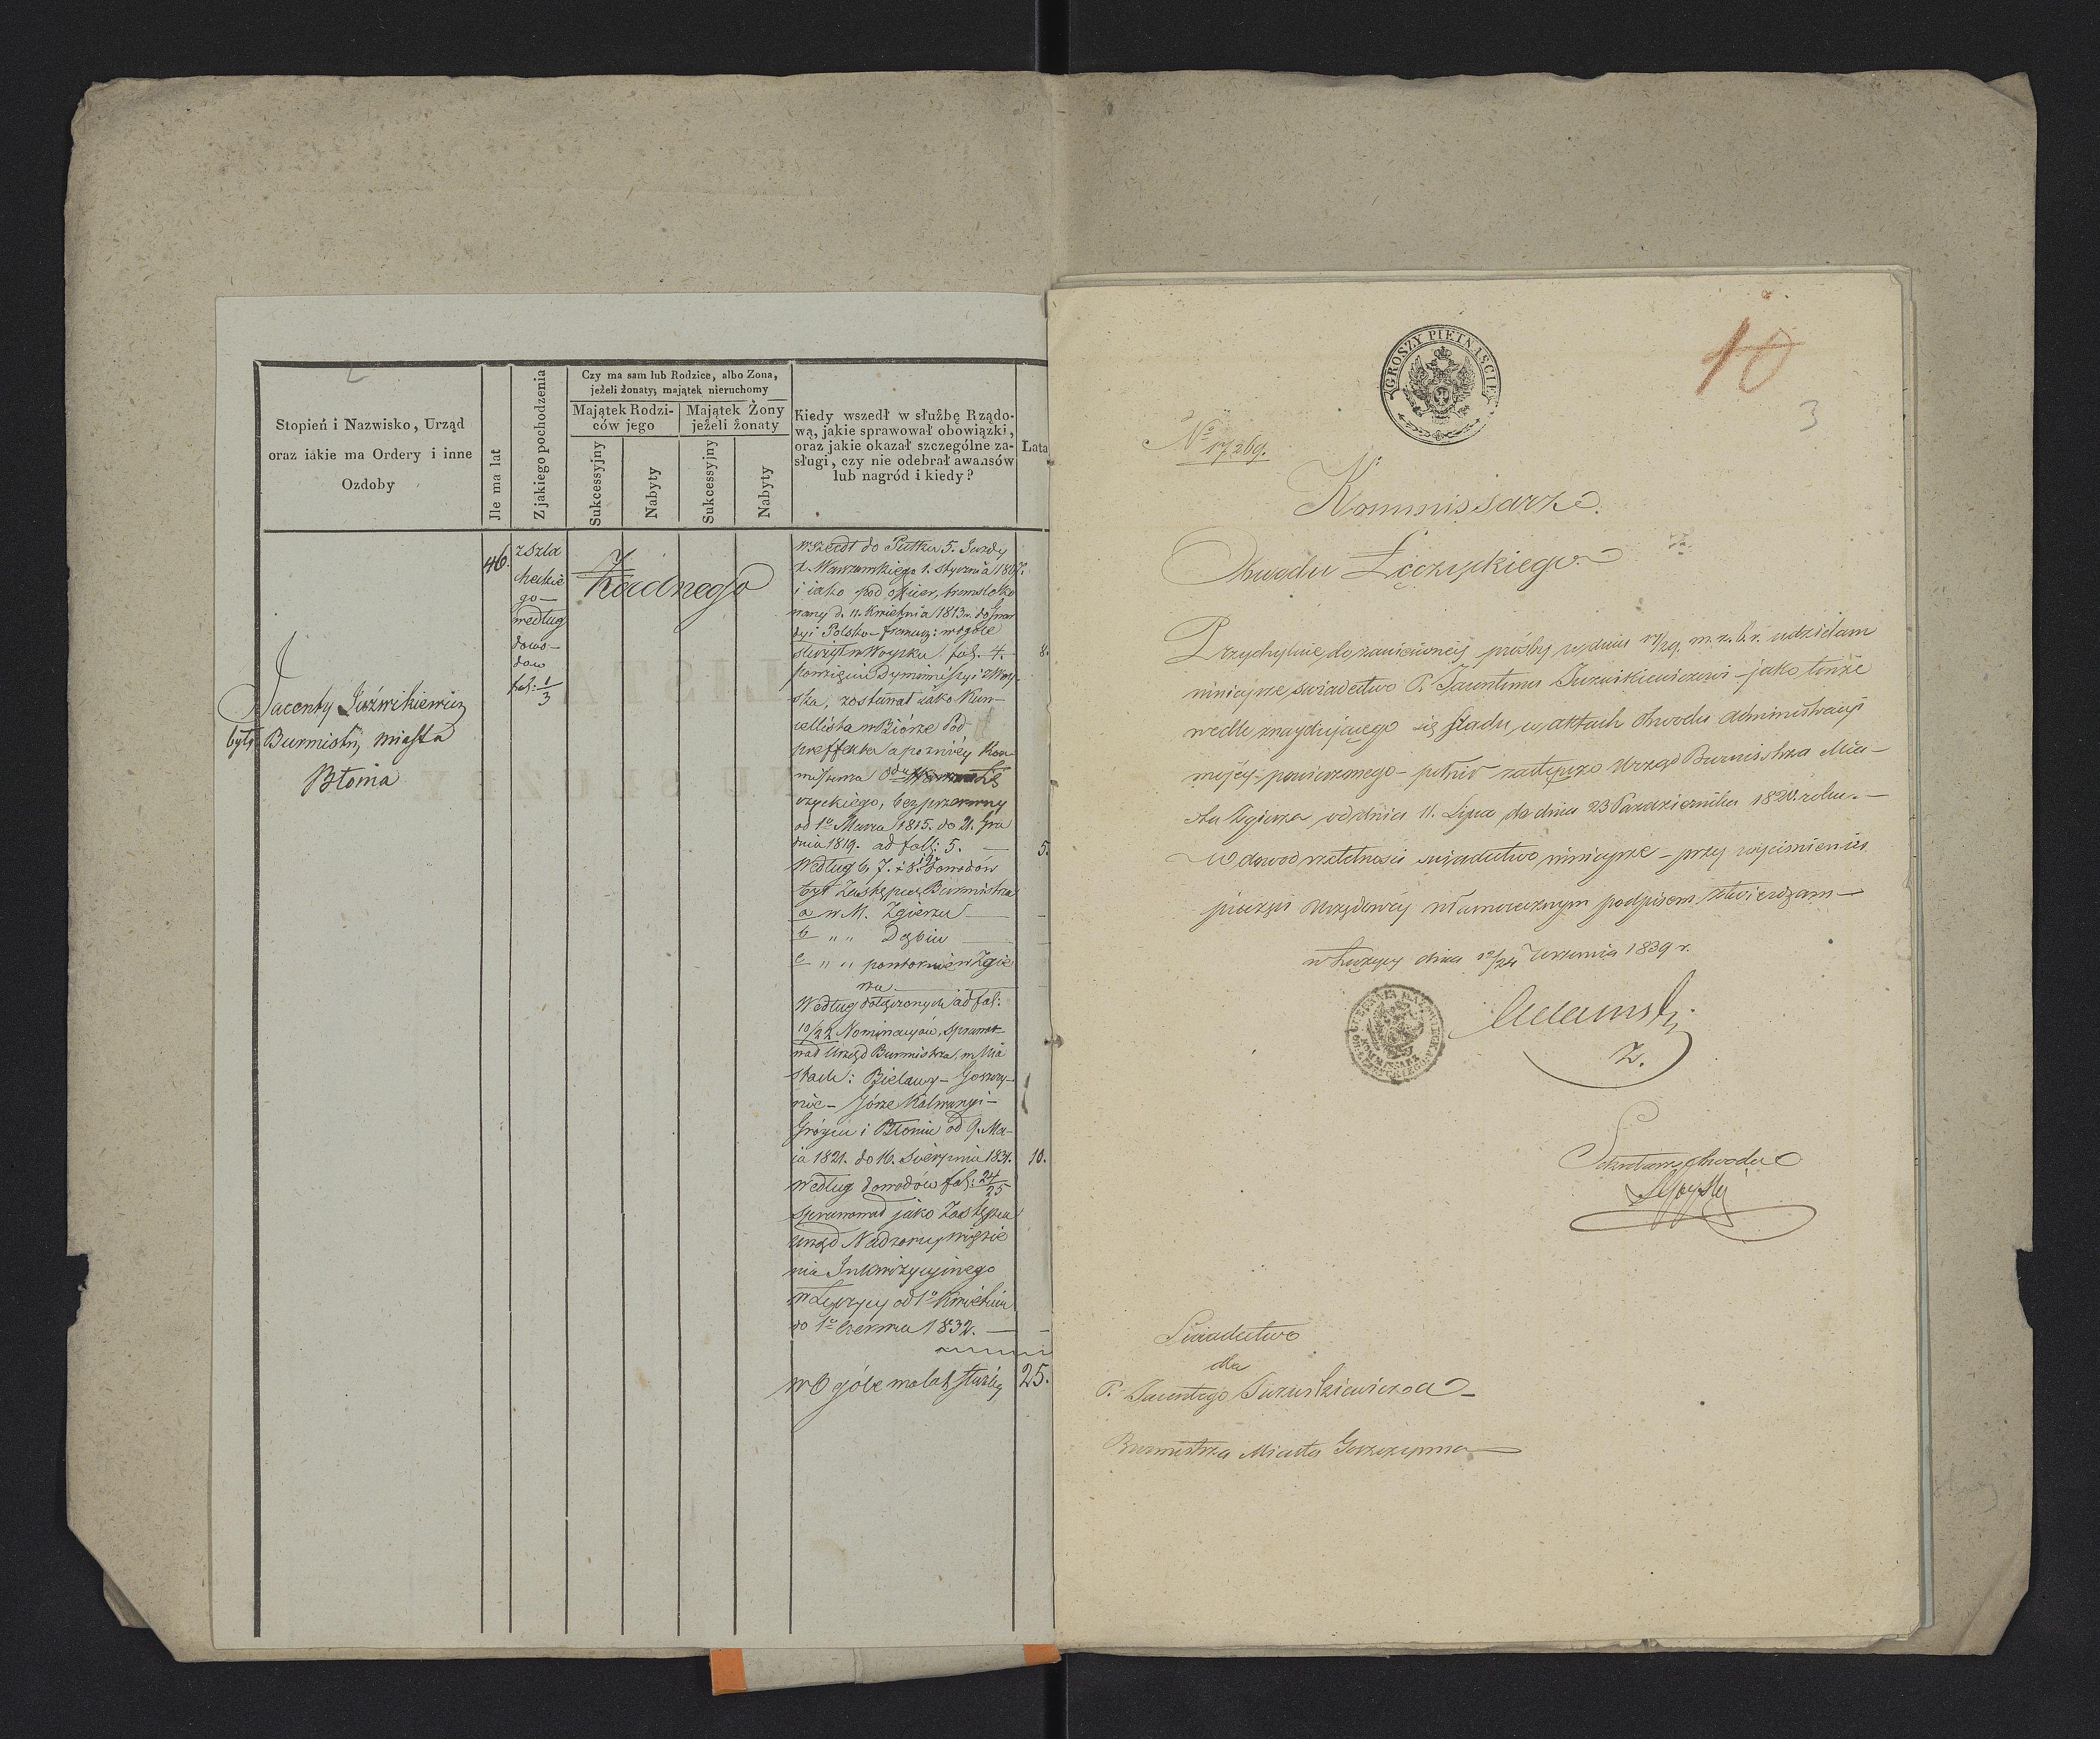 2
Stopień i Nazwisko, Urząd
oraz iakie ma Ordery i inne
Ozdoby
Jle ma lat
Z jakiego pochodzenia
Czy ma sam lub Rodzice, albo Zona,
jeżeli żonaty; majątek nieruchomy
Majątek Rodzi-
ców jego
Majątek Żony
jeżeli żonaty
Sukcessyjny
Nabyty
Sukcessyjny
Nabyty
Kiedy wszedł w służbę Rządo-
wą, jakie sprawował obowiązki,
oraz jakie okazał szczególne za-
sługi, czy nie odebrał awansów
lub nagród i kiedy?
Lata
Jacenty Juźwikiewicz
były Burmistrz Miasta
Błonia
46.
z szla
checkie
go —
według
dowo-
dow
fol: 1/3
Żadnego
wszedł do Pułku 5. Jazdy
X. Warszawskiego 1. Stycznia 1807.
i iako pod officer, transloko
wany d. 11. Kwietnia 1813 r. do Gwar
dyi Polsko-francuz: w ogóle
służył w Woysku fol. 4. — 8.
po wzięciu Dymmissyi z Woy-
ska, zostawał iako Kan-
cellista w Biórze Pod
preffekta a poźniéy Kom
missarza Obdu Łę
czyckiego, bez przerwy
od 1o Marca 1815. do 21. Gru
dnia 1819. ad fol: 5. — 5.
Według 6, 7. i 8. dowodów
był Zastępcą Burmistrza
a w M. Zgierzu —
b " " Dąbiu —
c " " powtornie w Zgie
rzu —
Według dołączonych ad fol:
10/22 Nominacyów, sprawo-
wał Urząd Burmistrza, w Mia
stach: Bielawy — Goszczy-
nie — Górze Kalwaryi —
Gróycu i Błoniu od 9. Ma-
ia 1821. do 16. Sierpnia 1831. 10.
Według dowodów fol: 24/25
sprawował jako Zastępca
Urząd Nadzorcy więzie
nia Inkwizycyjnego
w Łęczycy od 1o Kwietnia
do 1o Czerwca 1832. —
w Ogóle ma lat służby 25.
GROSZY PIETNAŚCIE
10
3
No 17,269.
Kommissarz
Obwodu Łęczyckiego
Przychylnie do zaniesionéj prośby w dniu 17/29. m. z. b. r. udzielam
niniejsze świadectwo P. Jacentemu Juzwikiewiczowi — jako tenże
wedle znajdującego się śladu w aktach Obwodu administracyi
mojéj powierzonego — pełnił zastępczo Urząd Burmistrza Mia-
sta Zgierza od dnia 11. Lipca do dnia 23 Października 1820. roku. —
W dowod rzetelności świadectwo niniejsze — przy wyciśnieniu
pieczęci Urzędowéj własnoręcznym podpisem stwierdzam —
w Łęczycy dnia 12/24 Września 1839 r.
Sekretarz Obwodu
Świadectwo
dla
P. Jacentego Juzwikiewicza —
Burmistrza Miasta Goszczyna —